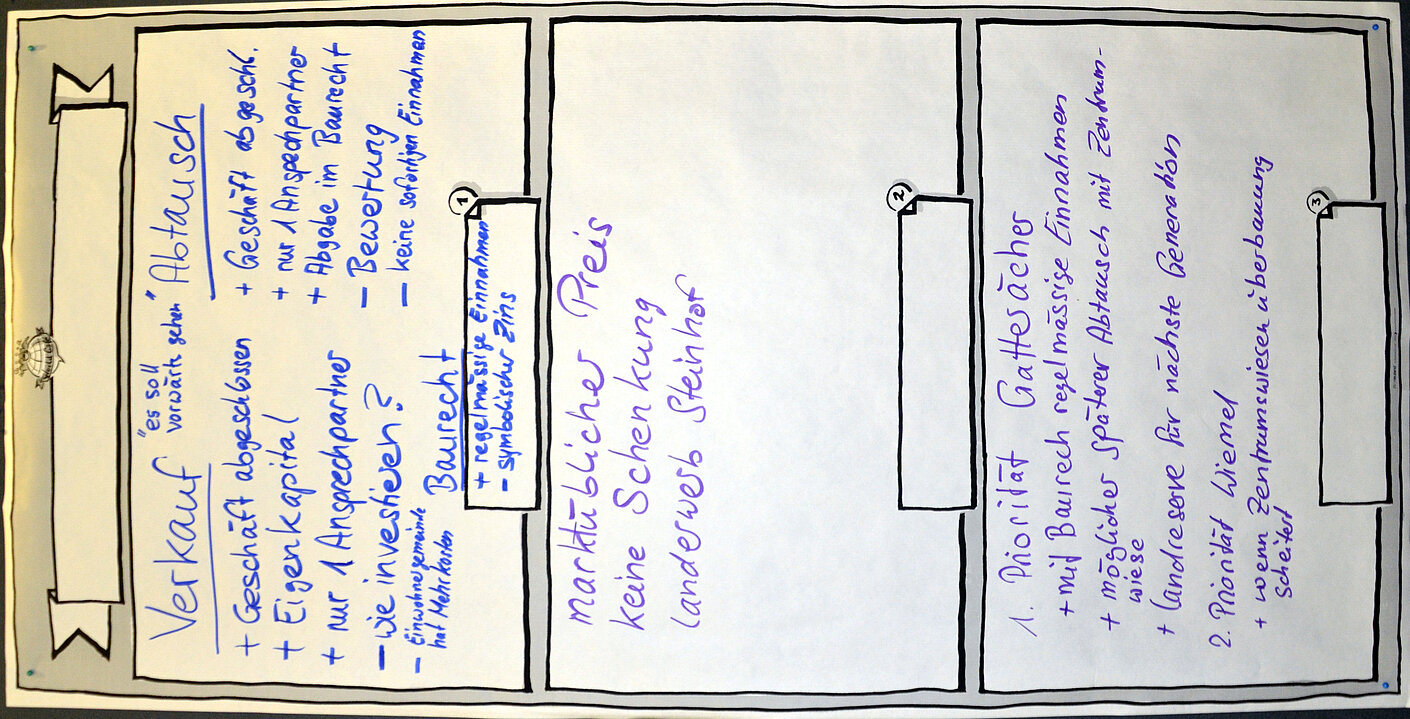 Verkauf
"es soll
vorwärts gehen"
+ Geschäft abgeschlossen
+ Eigenkapital
+ nur 1 Ansprechpartner
- Wie investieren?
- Einwohnergemeinde
hat Mehrkosten
Abtausch
+ Geschäft abgeschl.
+ nur 1 Anspechpartner
+ Abgabe im Baurecht
- Bewertung
- keine sofortigen Einnahmen
Baurecht
+ regelmässige Einnahmen
- symbolischer Zins
1
marktüblicher Preis
keine Schenkung
Landerwerb Steinhof
2
1. Priorität Gattesächer
+ mit Baurech regelmässige Einnahmen
+ möglicher späterer Abtausch mit Zentrum-
wiese
+ Landreserve für nächste Generation
2. Priorität Wiemel
+ wenn Zentrumswiesenüberbauung
scheitert
3